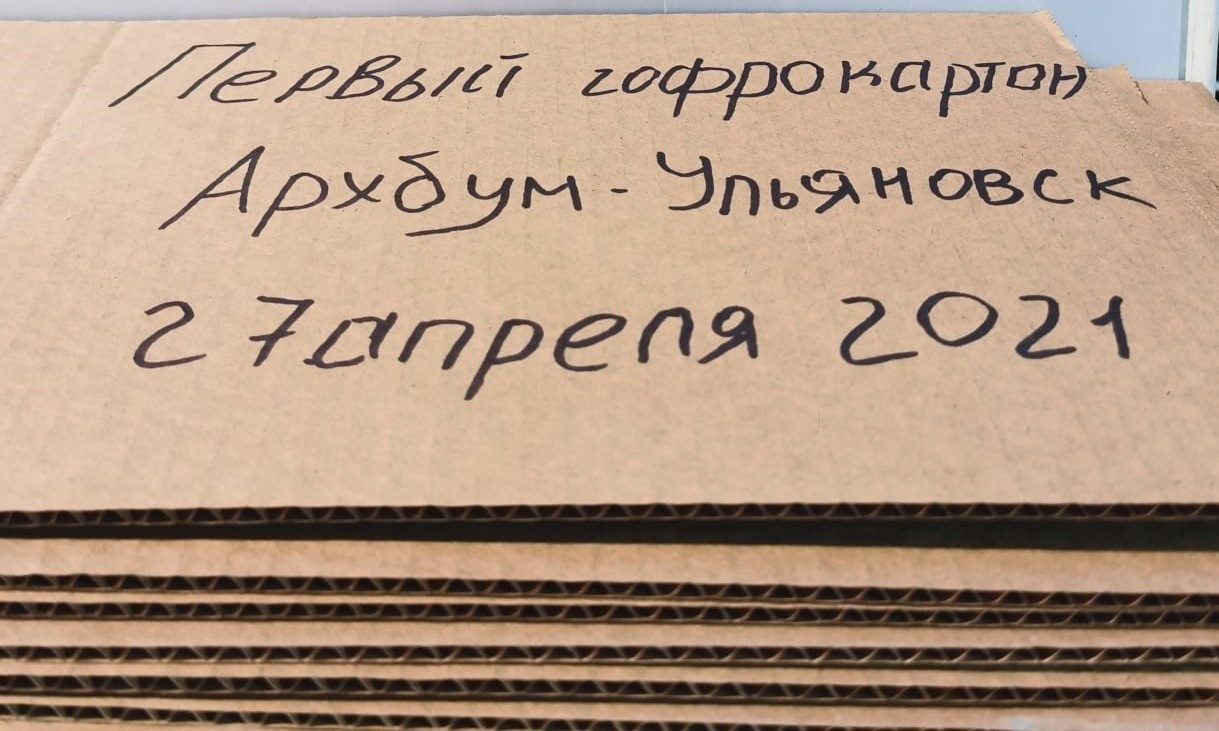 Первый гофрокартон
Архбум - Ульяновск
27 апреля 2021